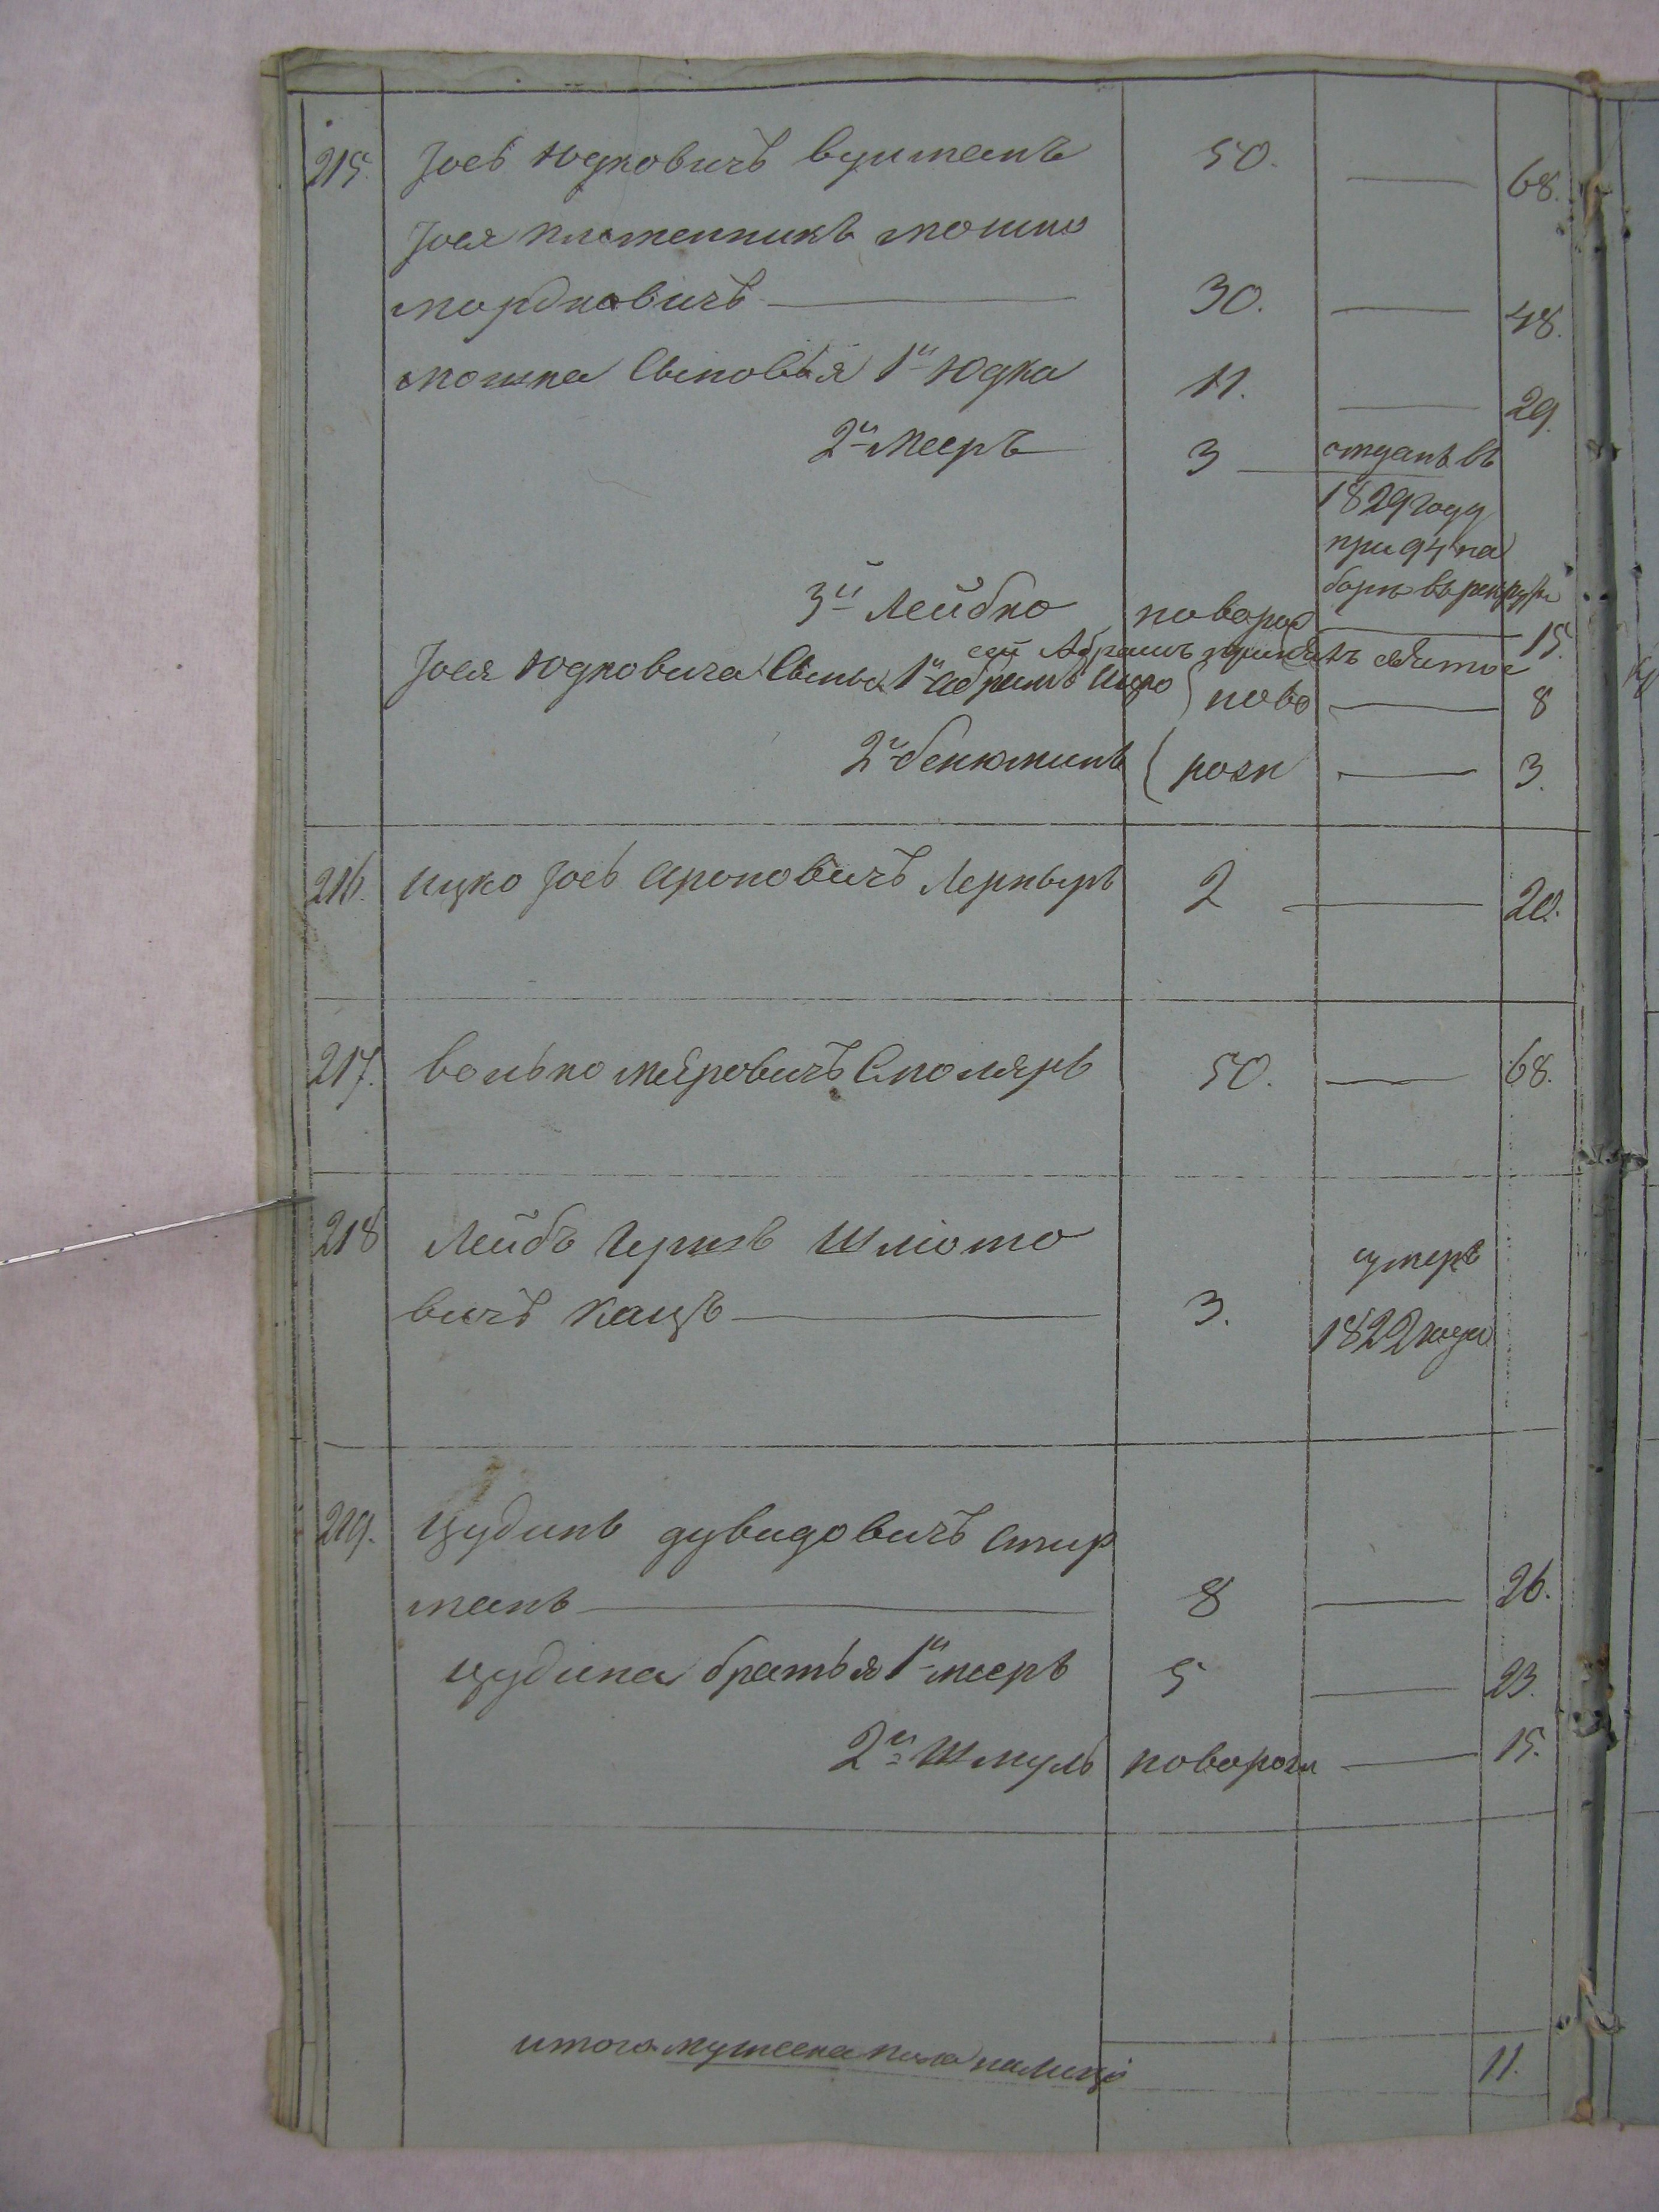 215. Іосъ Юдковичъ вушманъ 50. — 68.
Іося племенникъ мошко
мордковичъ — 30. — 48.
мошка Сыновья 1й Юдка 11. — 29.
2й Мееръ 3 — отданъ въ
1829 году
при 94 на
боръ въ рекруты
3й Лейбко новорож 15.
сей Абрамъ принялъ святое
Іося Юдковича Сыны 1й Абрамъ Ицко } ново — 8
2й бенюминъ { рожд — 3.
216. Ицко Іосъ Ароновичъ Лернеръ 2 — 20.
217. волько меэровичъ Столяръ 50. — 68.
218 Лейбъ Гершъ Шліомо
вичъ Кацъ — 3. умеръ
1822 года
219. Цудикъ дувидовичъ Стир
манъ — 8 — 26.
цудика братья 1й мееръ 5 — 23.
2й Шмуль новорожд — 15.
итого мужеска пола налицо 11.